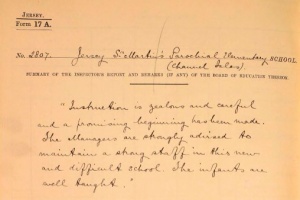 JERSEY.
FORM 17 A.
No. 2807. Jersey St Martin's Parochial Elementary SCHOOL
(Channel Isles)
SUMMARY OF THE INSPECTOR'S REPORT AND REMARKS (IF ANY) OF THE BOARD OF EDUCATION THEREON.
"Instruction is zealous and careful
and a promising beginning has been made.
The Managers are strongly advised to
maintain a strong staff in this new
and difficult school. The infants are
well taught."